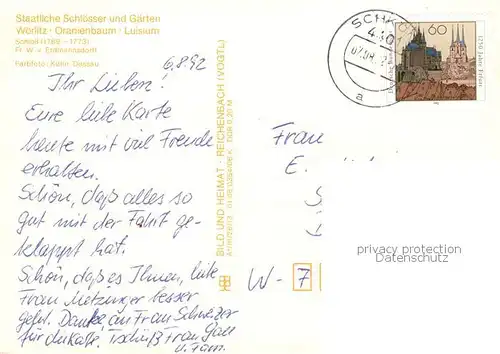 Staatliche Schlösser und Gärten
Wörlitz · Oranienbaum · Luisium
Schloß (1769 - 1773)
Fr. W. v. Erdmannsdorff
Farbfoto: Kühn, Dessau
6.8.92
Ihr Lieben!
Eure liebe Karte
heute mit viel Freude
erhalten.
Schön, daß alles so
gut mit der Fahrt ge-
klappt hat.
Schön, daß es Ihnen, liebe
Frau Metzinger besser
geht. Danke an Frau Schweizer
für die Karte. Tschüß Frau Gall
u. Fam.
BILD UND HEIMAT · REICHENBACH (VOGTL)
SCHK
a
60
1250 Jahre Erfurt
Frau
E.
W-7
privacy protection
Datenschutz